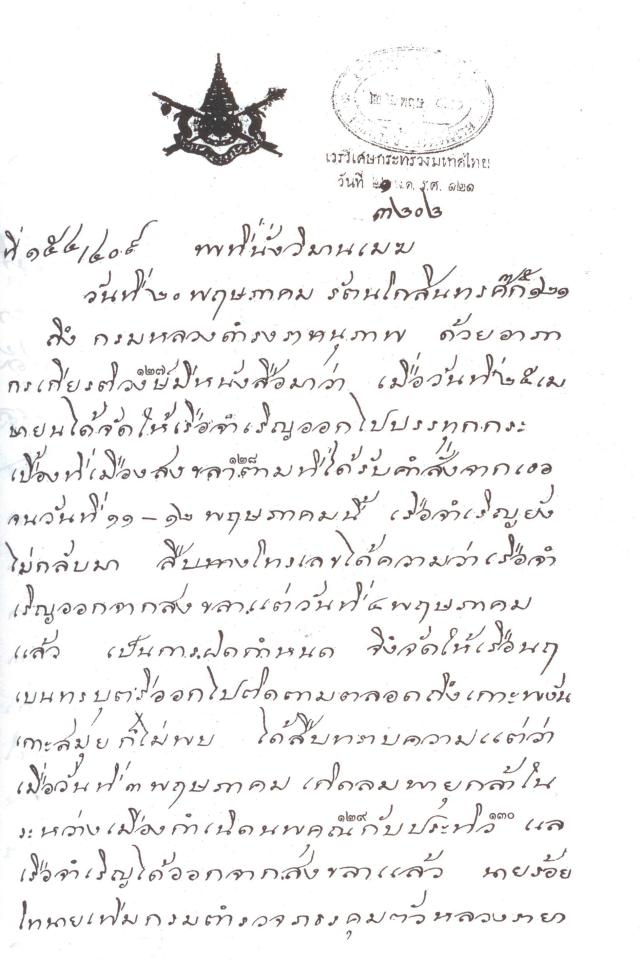 ๒๒ พฤษ
เวรวิเศษกระทรวงมหาดไทย
วันที่ ๒๑ พ.ค. ร.ศ. ๑๒๑
๓๒๐๒
ที่ ๑๕๔/๔๐๙ พที่นั่งวิมานเมฆ
วันที่ ๒๐ พฤษภาคม รัตนโกสินทรศก ๑๒๑
ถึง กรมหลวงดำรงราชานุภาพ ด้วยอาภา
กรเกียรติวงษ์๑๒๗มีหนังสือมาว่า เมื่อวันที่ ๒๕ เม
ษายนได้จัดให้เรือจำเริญออกไปบรรทุกกระ
เบื้องที่เมืองสงขลา๑๒๘ตามที่ได้รับคำสั่งจากเธอ
จนวันที่ ๑๑ – ๑๒ พฤษภาคมนี้ เรือจำเริญยัง
ไม่กลับมา สืบทางโทรเลขได้ความว่าเรือจำ
เริญออกจากสงขลาแต่วันที่ ๔ พฤษภาคม
แล้ว เป็นการผิดกำหนด จึงจัดให้เรือนฤ
เบนทรบุตรีออกไปติดตามตลอดถึงเกาะพงัน
เกาะสมุย ก็ไม่พบ ได้สืบทราบความแต่ว่า
เมื่อวันที่ ๓ พฤษภาคม เกิดลมพายุกล้าใน
ระหว่างเมืองกำเนิดนพคุณ๑๒๙กับประทิว๑๓๐ แล
เรือจำเริญได้ออกจากสงขลาแล้ว นายร้อย
โทนายเพิ่มกรมตำรวจภูธรคุมตัวหลวงรายา